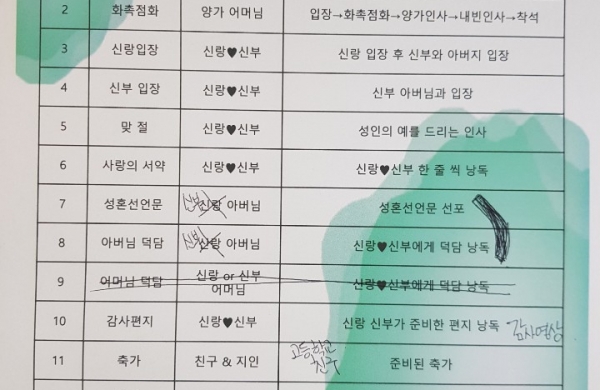 2 화촉점화 양가 어머님 입장→화촉점화→양가인사→내빈인사→착석
3 신랑입장 신랑♥신부 신랑 입장 후 신부와 아버지 입장
4 신부 입장 신랑♥신부 신부 아버님과 입장
5 맞 절 신랑♥신부 성인의 예를 드리는 인사
6 사랑의 서약 신랑♥신부 신랑♥신부 한 줄 씩 낭독
7 성혼선언문 신부 신랑 아버님 성혼선언문 선포
8 아버님 덕담 신부 신랑 아버님 신랑♥신부에게 덕담 낭독
9 어머님 덕담 신랑 or 신부 신랑♥신부에게 덕담 낭독
어머님
10 감사편지 신랑♥신부 신랑 신부가 준비한 편지 낭독 감사영상
11 축가 친구 & 지인 고등학교 준비된 축가
친구